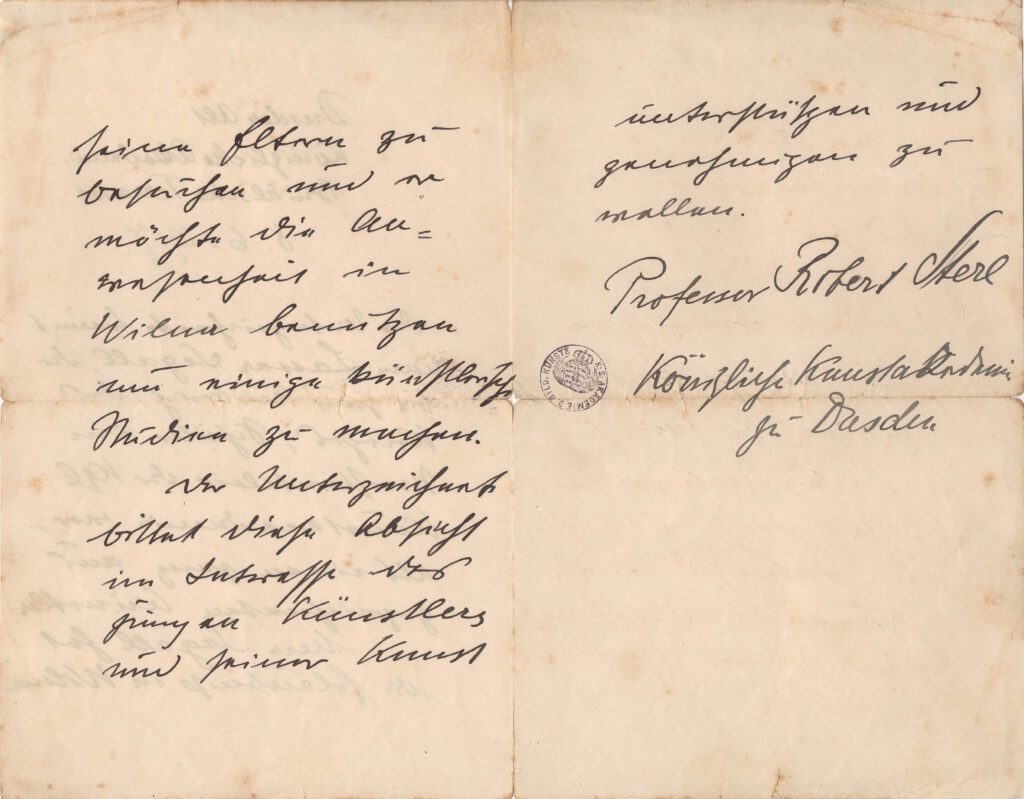 seine Eltern zu
besuchen und er
möchte die An=
wesenheit in
Wilna benutzen
um einige künstlerische
Studien zu machen.
Der Unterzeichnete
bittet diese Absicht
im Interesse des
jungen Künstlers
und seiner Kunst
unterstützen und
genehmigen zu
wollen.
Professor Robert Sterl
K.S. AKADEMIE D. BILD. KÜNSTE
Königliche Kunstakademie
zu Dresden